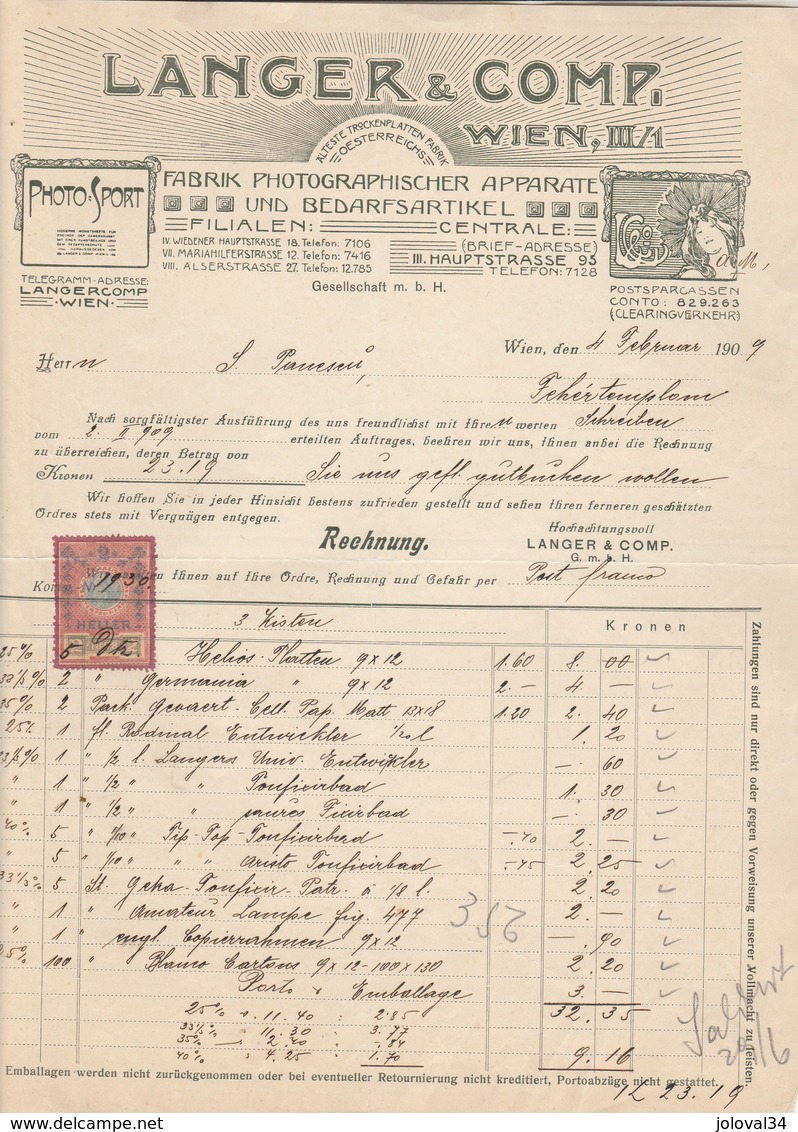 LANGER & COMP.
WIEN, III/1
ÄLTESTE TROCKENPLATTEN FABRIK
OESTERREICHS
PHOTO-SPORT
FABRIK PHOTOGRAPHISCHER APPARATE
UND BEDARFSARTIKEL
FILIALEN: CENTRALE:
IV. WIEDENER HAUPTSTRASSE 18. Telefon: 7106
VII. MARIAHILFERSTRASSE 12. Telefon: 7416
VIII. ALSERSTRASSE 27. Telefon: 12.785
(BRIEF-ADRESSE)
III. HAUPTSTRASSE 95
TELEFON: 7128
TELEGRAMM-ADRESSE:
LANGERCOMP
WIEN
Gesellschaft m. b. H.
POSTSPARCASSEN
CONTO: 829.263
(CLEARINGVERKEHR)
Wien, den 4 Februar 1909
Herrn S. Panescu,
Fehértemplom
Nach sorgfältigster Ausführung des uns freundlichst mit Ihren werten Schreiben
vom 2. II 909 erteilten Auftrages, beehren wir uns, Ihnen anbei die Rechnung
zu überreichen, deren Betrag von
Kronen 23.19 Sie uns gefl. gutbuchen wollen
Wir hoffen Sie in jeder Hinsicht bestens zufrieden gestellt und sehen Ihren ferneren geschätzten
Ordres stets mit Vergnügen entgegen.
Hochachtungsvoll
Rechnung.
LANGER & COMP.
G. m. b. H.
Ihnen auf Ihre Ordre, Rechnung und Gefahr per Post franco
2
HELLER
3 Kisten Kronen
25% 5 Helios-Platten 9x12 1.60 8.00
33⅓% 2 " Germania " 9x12 2.— 4.—
35% 2 Pack Gevaert Cell. Pap. Matt 13x18 1.20 2.40
25% 1 fl. Rodinal Entwickler 1/20 l 1.20
33⅓% 1 " 1/2 l. Langers Univ. Entwickler —.60
" 1 " 1/2 " " Tonfixirbad 1.30
" 1 " 1/2 " " saures Fixirbad —.30
40% 5 " 1/10 " Tip-Top-Tonfixirbad —.40 2.—
" 5 " 1/10 " " " Aristo Tonfixirbad —.45 2.25
33⅓% 5 St. Geka-Tonfixir-Patr. à 1/8 l. 2.20
" 1 " Amateur Lampe fig. 477 2.—
" 1 " engl. Copierrahmen 9x12 —.90
25% 100 " Blanco Cartons 9x12-100x130 2.20
Porto & Emballage 3.—
32.35
25% v. 11.40 : 2.85
33⅓% " 11.30 : 3.77
35% " 2.40 : -.84
40% " 4.25 : 1.70
9.16
Emballagen werden nicht zurückgenommen oder bei eventueller Retournierung nicht kreditiert, Portoabzüge nicht gestattet.
K 23.19
Zahlungen sind nur direkt oder gegen Vorweisung unserer Vollmacht zu leisten.
delcampe.net
joloval34